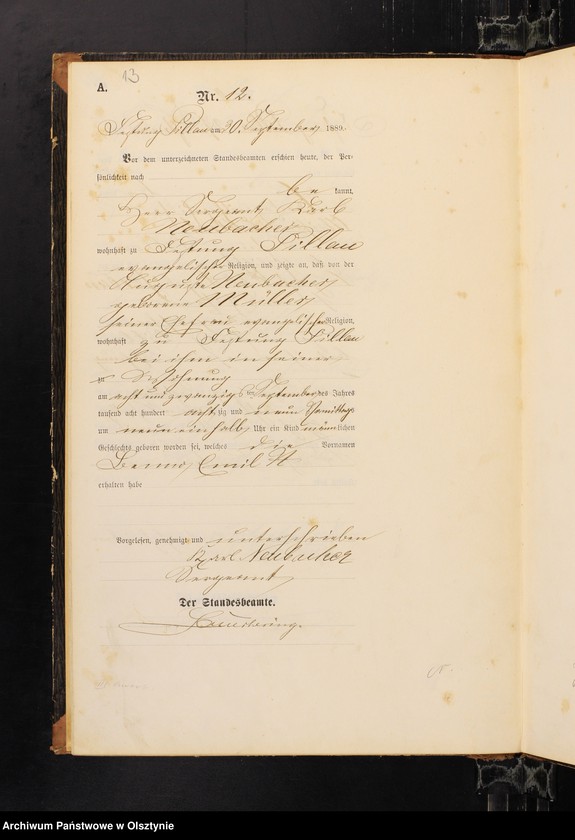 A.
13
Nr. 12.
Festung Pillau am 30. September 1889.
Vor dem unterzeichneten Standesbeamten erschien heute, der Per-
sönlichkeit nach
be kannt,
Herr Sergeant Karl
Neubacher
wohnhaft zu Festung Pillau
evangelischer Religion, und zeigte an, daß von der
Auguste Neubacher
geborene Müller
seiner Ehefrau evangelischer Religion,
wohnhaft zu Festung Pillau
bei ihm in seiner
zu Wohnung
am acht und zwanzigsten September des Jahres
tausend acht hundert acht zig und neun Vormittags
um neun einhalb Uhr ein Kind männlichen
Geschlechts geboren worden sei, welches die Vornamen
Benno, Emil
erhalten habe
Vorgelesen, genehmigt und unterschrieben
Karl Neubacher
Sergeant
Der Standesbeamte.
Archiwum Państwowe w Olsztynie